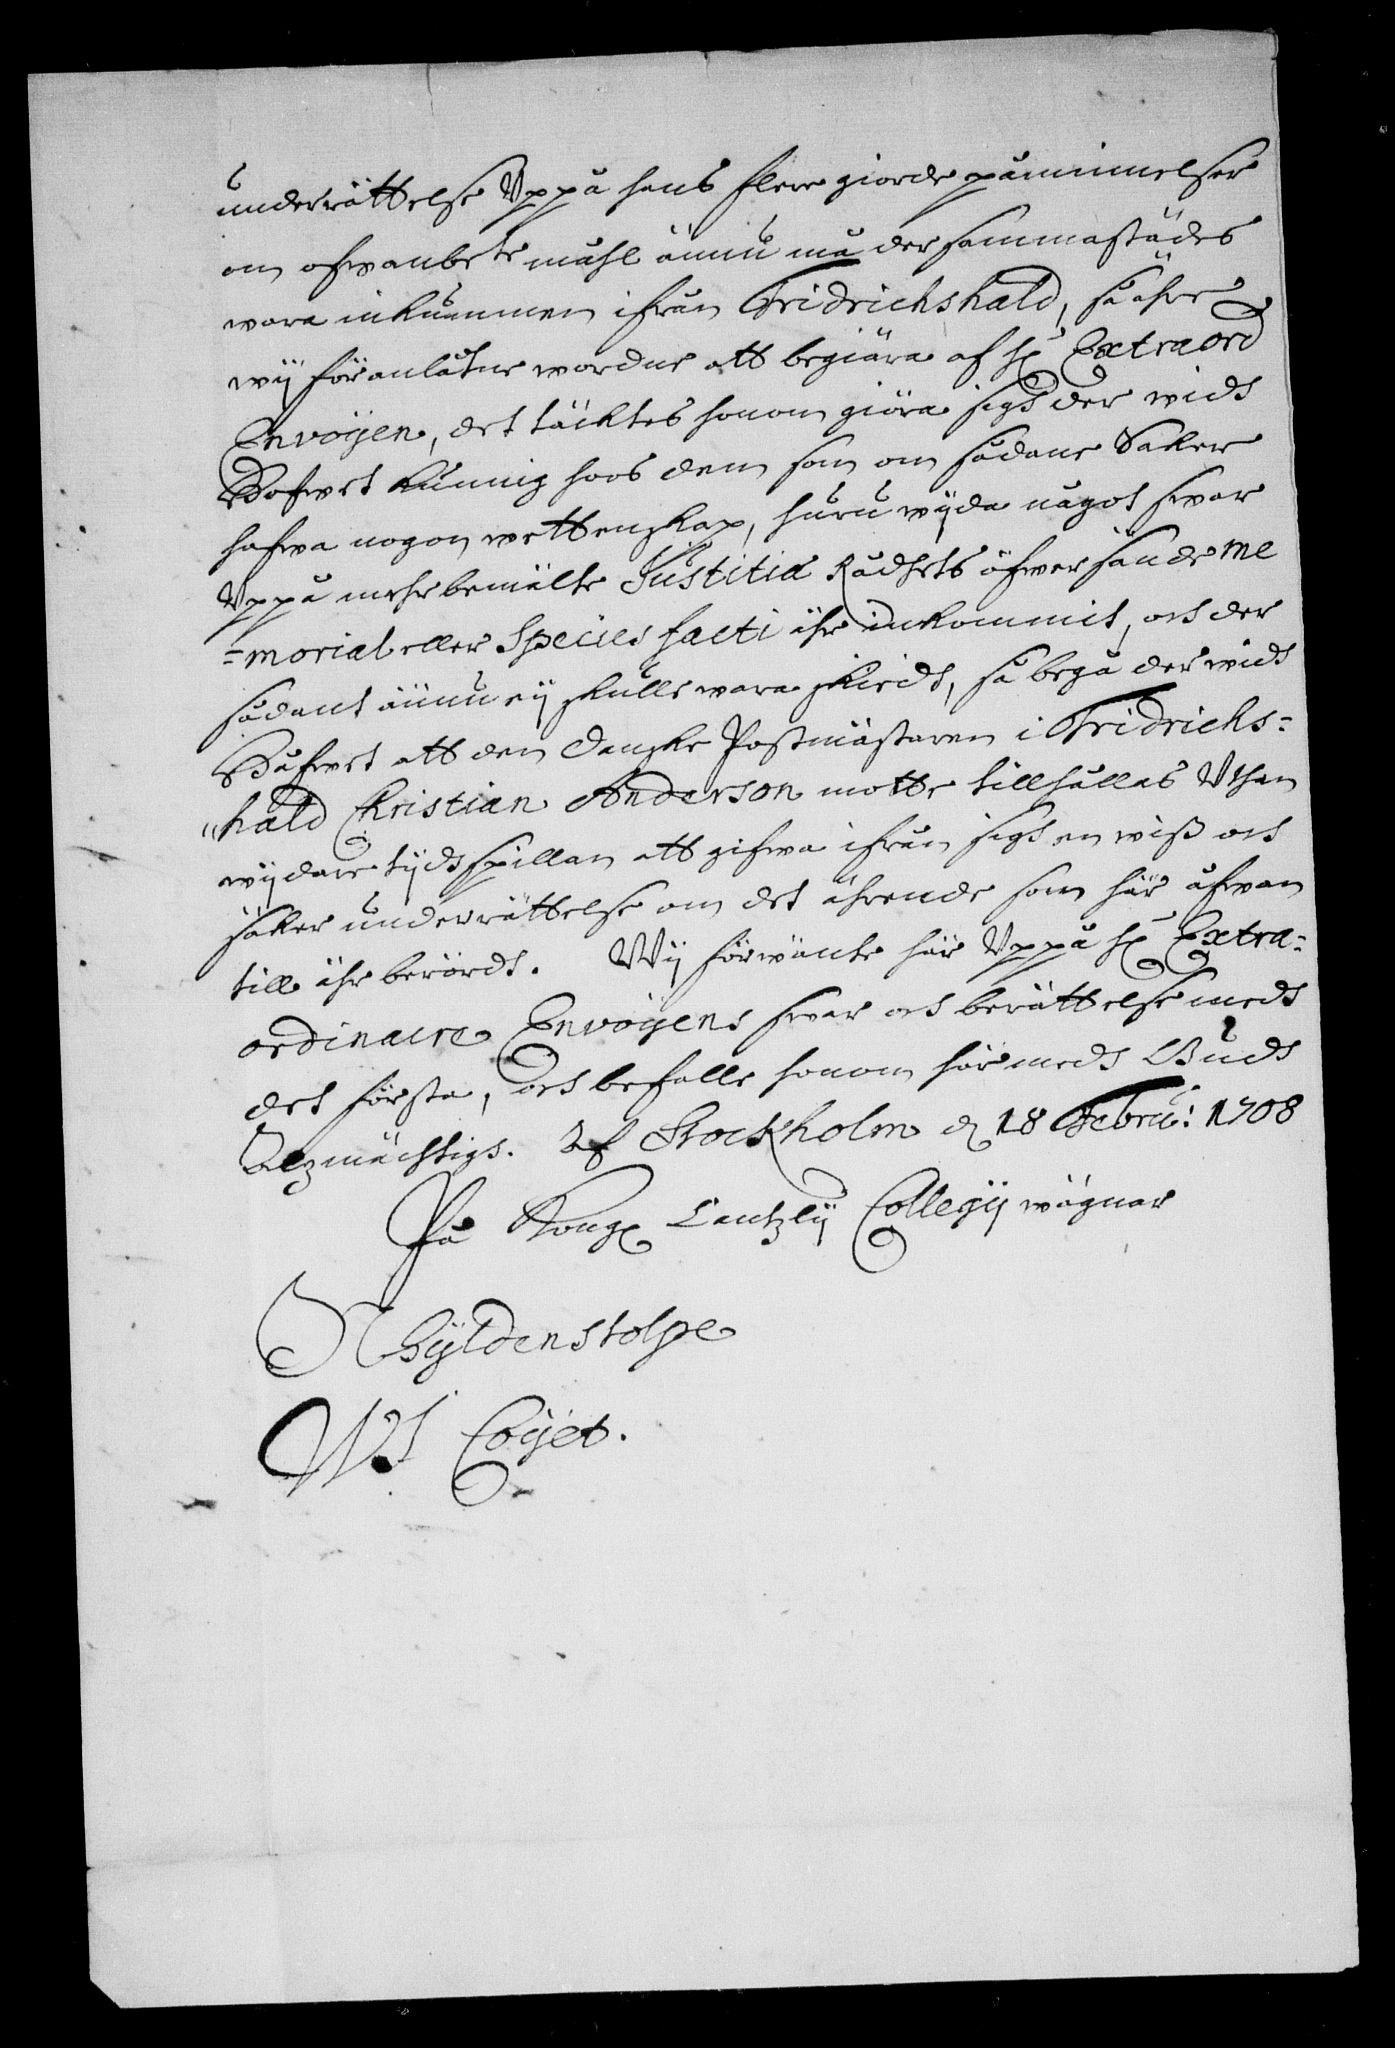 underrättelse Uppå hans flere giorde påminnelser
om ofwanbete måhl ännu må der sammastädes
wara inkummen ifrån Fridrichshald, så ähre
wij föranlåtne wordne att begiära af H: Extraord
Envoijen, det täcktes honom giöra sigh der widh
Hofwet kunnig hoos dem som om sådane Saker
hafwa nogon wettenskap, huru wijda något swar
Uppå mehrbemälte Justitiæ Rådhets öfwersände me
=morial eller Species facti ähr inkommit, och der
sådant ännu eij skulle wara skiedt, så begå der widh
Håfwet att den Danske Postmästaren i Fridrichs=
"hald Christian Anderson motte tillhållas Uthan
wijdare tijdhspillan att gifwa ifrån sigh en wiß och
säker underrättelse om det ährende som här åfwan
till ähr berördt. Wij förwänte här Uppå H: Extra=
ordinaire Envoijens swar och berättelse medh
det första, och befalle honom här medh Gudh
Alzmächtigh. Af Stockholm d 18 Febru: 1708
På Kongl Cantzlij Collegij wägnar
N Gyldenstolpe
WJ Coijet.